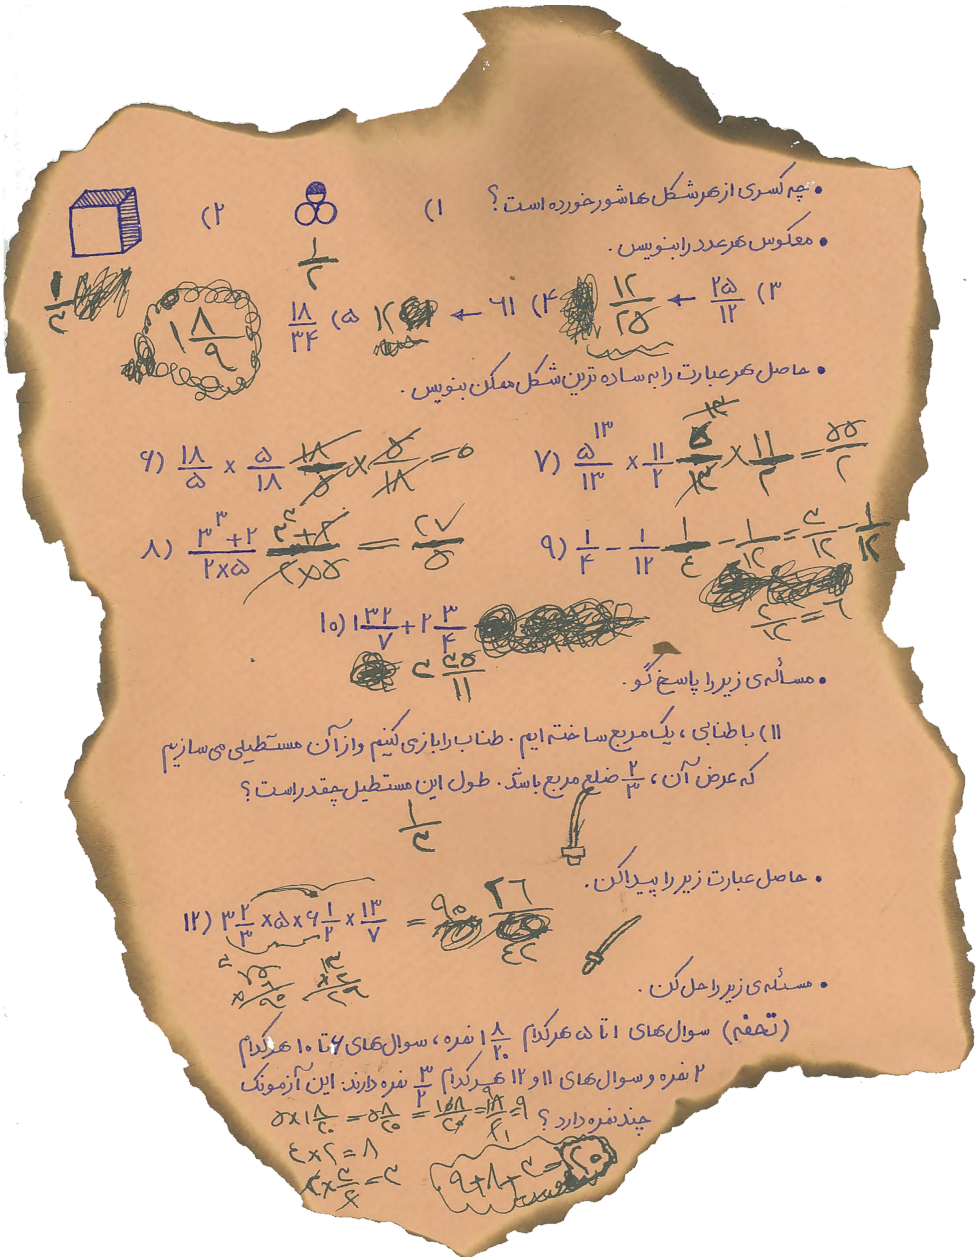 • چه کسری از هر شکل هاشور خورده است؟ ۱) ۲)
۱/۲ ۱/۲
• معکوس هر عدد را بنویس.
۳) ۲۵/۱۲ ← ۱۲/۲۵ ۴) ۶۱ ← ۱۲ ۵) ۱۸/۳۴ ۱ ۸/۹
• حاصل هر عبارت را به ساده ترین شکل ممکن بنویس.
۶) ۱۸/۵ × ۵/۱۸ ۱۸/۵ × ۵/۱۸ = ۰ ۷) ۵^۱۳/۱۳ × ۱۱/۲ ۵^۱۳/۱۳ × ۱۱/۲ = ۵۵/۲
۸) ۳^۳+۲/۲×۵ ۳^۳+۲/۲×۵ = ۲۷/۵ ۹) ۱/۴ - ۱/۱۲ ۱/۴ - ۱/۱۲ = ۳/۱۲ - ۱/۱۲
۲/۱۲ = ۶
۱۰) ۱ ۳۲/۷ + ۲ ۳/۴
۳ ۳۵/۱۱
• مسأله‌ی زیر را پاسخ گو.
۱۱) با طنابی، یک مربع ساخته ایم. طناب را باز می کنیم و از آن مستطیلی می سازیم
که عرض آن، ۲/۳ ضلع مربع باشد. طول این مستطیل چقدر است؟
۱/۳
• حاصل عبارت زیر را پیدا کن.
۱۲) ۳ ۲/۳ × ۵ × ۶ ۱/۲ × ۱۳/۷ = ۹۰ ۲۶/۴۲
• مسئله‌ی زیر را حل کن.
(تحفه) سوال های ۱ تا ۵ هر کدام ۱ ۸/۲۰ نمره، سوال های ۶ تا ۱۰ هر کدام
۲ نمره و سوال های ۱۱ و ۱۲ هر کدام ۳/۲ نمره دارند. این آزمونک
چند نمره دارد؟
۵×۱ ۸/۲۰ = ۵ ۸/۲۰ = ۱۰۸/۲۰ = ۹
۴×۲=۸
۲×۳/۲=۳
۹+۸+۳=۲۰